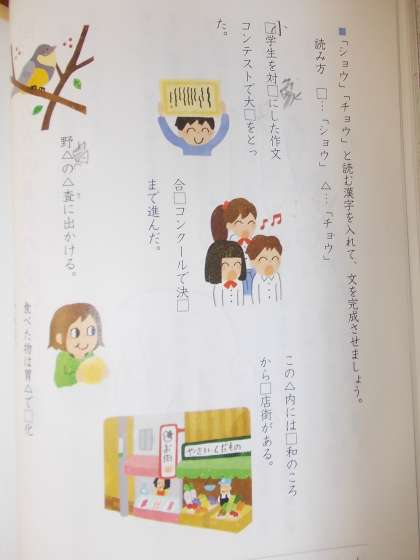 ■「ショウ」「チョウ」と読む漢字を入れて、文を完成させましょう。
読み方　□…「ショウ」　△…「チョウ」
□学生を対□にした作文
コンテストで大□をとっ
た。
合□コンクールで決□
まで進んだ。
野△の△査に出かける。
この△内には□和のころ
から□店街がある。
お肉
やさい くだもの
食べた物は胃△で□化